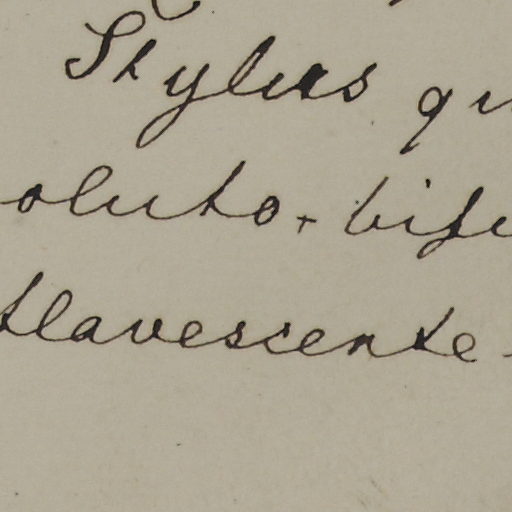 Stylus qu
oluto-bifi
flavescente-